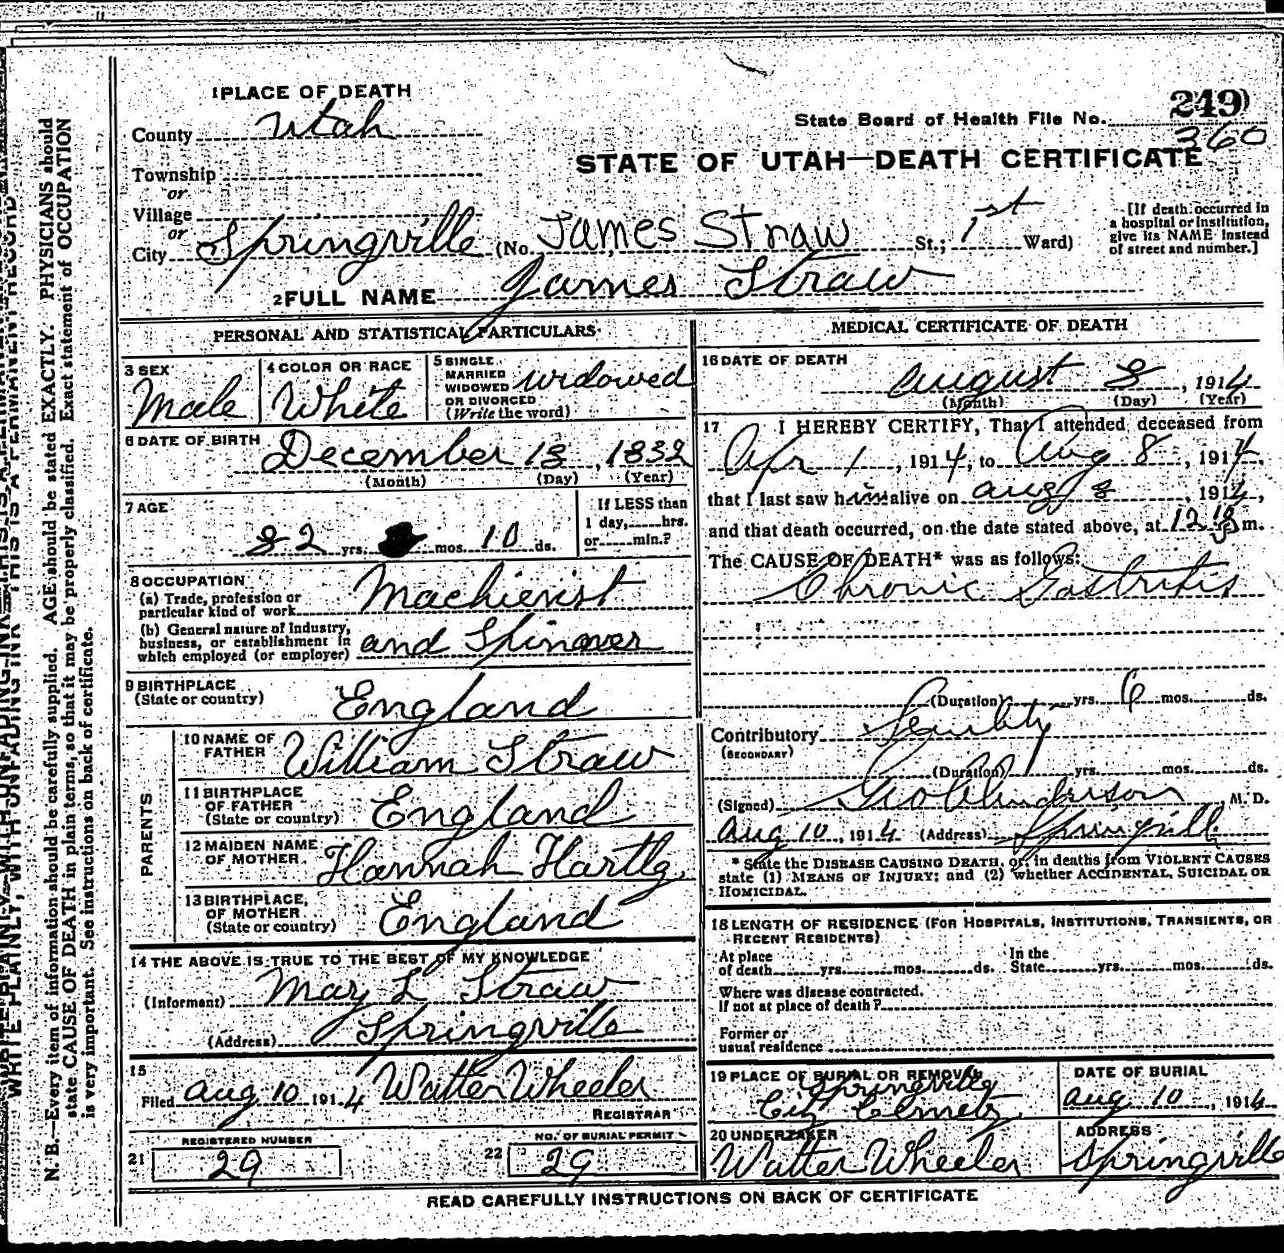 WRITE PLAINLY, WITH UNFADING INK—THIS IS A PERMANENT RECORD
N. B.—Every item of information should be carefully supplied. AGE should be stated EXACTLY. PHYSICIANS should
state CAUSE OF DEATH in plain terms, so that it may be properly classified. Exact statement of OCCUPATION
is very important. See instructions on back of certificate.
1 PLACE OF DEATH
County Utah
Township
or
Village
or
City Springville (No. James Straw St.; 1st Ward)
State Board of Health File No. 249
360
STATE OF UTAH—DEATH CERTIFICATE
[If death occurred in
a hospital or institution,
give its NAME instead
of street and number.]
2 FULL NAME James Straw
PERSONAL AND STATISTICAL PARTICULARS
3 SEX Male
4 COLOR OR RACE White
5 SINGLE
MARRIED
WIDOWED
OR DIVORCED
(Write the word) widowed
6 DATE OF BIRTH December 13, 1832
(Month) (Day) (Year)
7 AGE
82 yrs. mos. 10 ds.
If LESS than
1 day, hrs.
or min.?
8 OCCUPATION
(a) Trade, profession or
particular kind of work Machienist
(b) General nature of Industry,
business, or establishment in
which employed (or employer) and Spinover
9 BIRTHPLACE
(State or country) England
PARENTS
10 NAME OF
FATHER William Straw
11 BIRTHPLACE
OF FATHER
(State or country) England
12 MAIDEN NAME
OF MOTHER Hannah Hartly
13 BIRTHPLACE,
OF MOTHER
(State or country) England
14 THE ABOVE IS TRUE TO THE BEST OF MY KNOWLEDGE
(Informant) May L Straw
(Address) Springville
15
Filed Aug 10 1914 Walter Wheeler
REGISTRAR
REGISTERED NUMBER
21 29
NO. OF BURIAL PERMIT
22 29
MEDICAL CERTIFICATE OF DEATH
16 DATE OF DEATH
August 8, 1914
(Month) (Day) (Year)
17 I HEREBY CERTIFY, That I attended deceased from
Apr 1, 1914, to Aug 8, 1914,
that I last saw him alive on Aug 8, 1914,
and that death occurred, on the date stated above, at 12 m.
The CAUSE OF DEATH* was as follows:
Chronic Gastritis
(Duration) yrs. 6 mos. ds.
Contributory Senility
(SECONDARY)
(Duration) yrs. mos. ds.
(Signed) Geo Anderson M. D.
Aug 10, 1914 (Address) Springville
* State the DISEASE CAUSING DEATH, or, in deaths from VIOLENT CAUSES
state (1) MEANS OF INJURY; and (2) whether ACCIDENTAL, SUICIDAL OR
HOMICIDAL.
18 LENGTH OF RESIDENCE (FOR HOSPITALS, INSTITUTIONS, TRANSIENTS, OR
RECENT RESIDENTS)
At place
of death yrs. mos. ds.
In the
State yrs. mos. ds.
Where was disease contracted.
If not at place of death?
Former or
usual residence
19 PLACE OF BURIAL OR REMOVAL
Springville
City Cemetery
DATE OF BURIAL
Aug 10, 1914
20 UNDERTAKER
Walter Wheeler
ADDRESS
Springville
READ CAREFULLY INSTRUCTIONS ON BACK OF CERTIFICATE